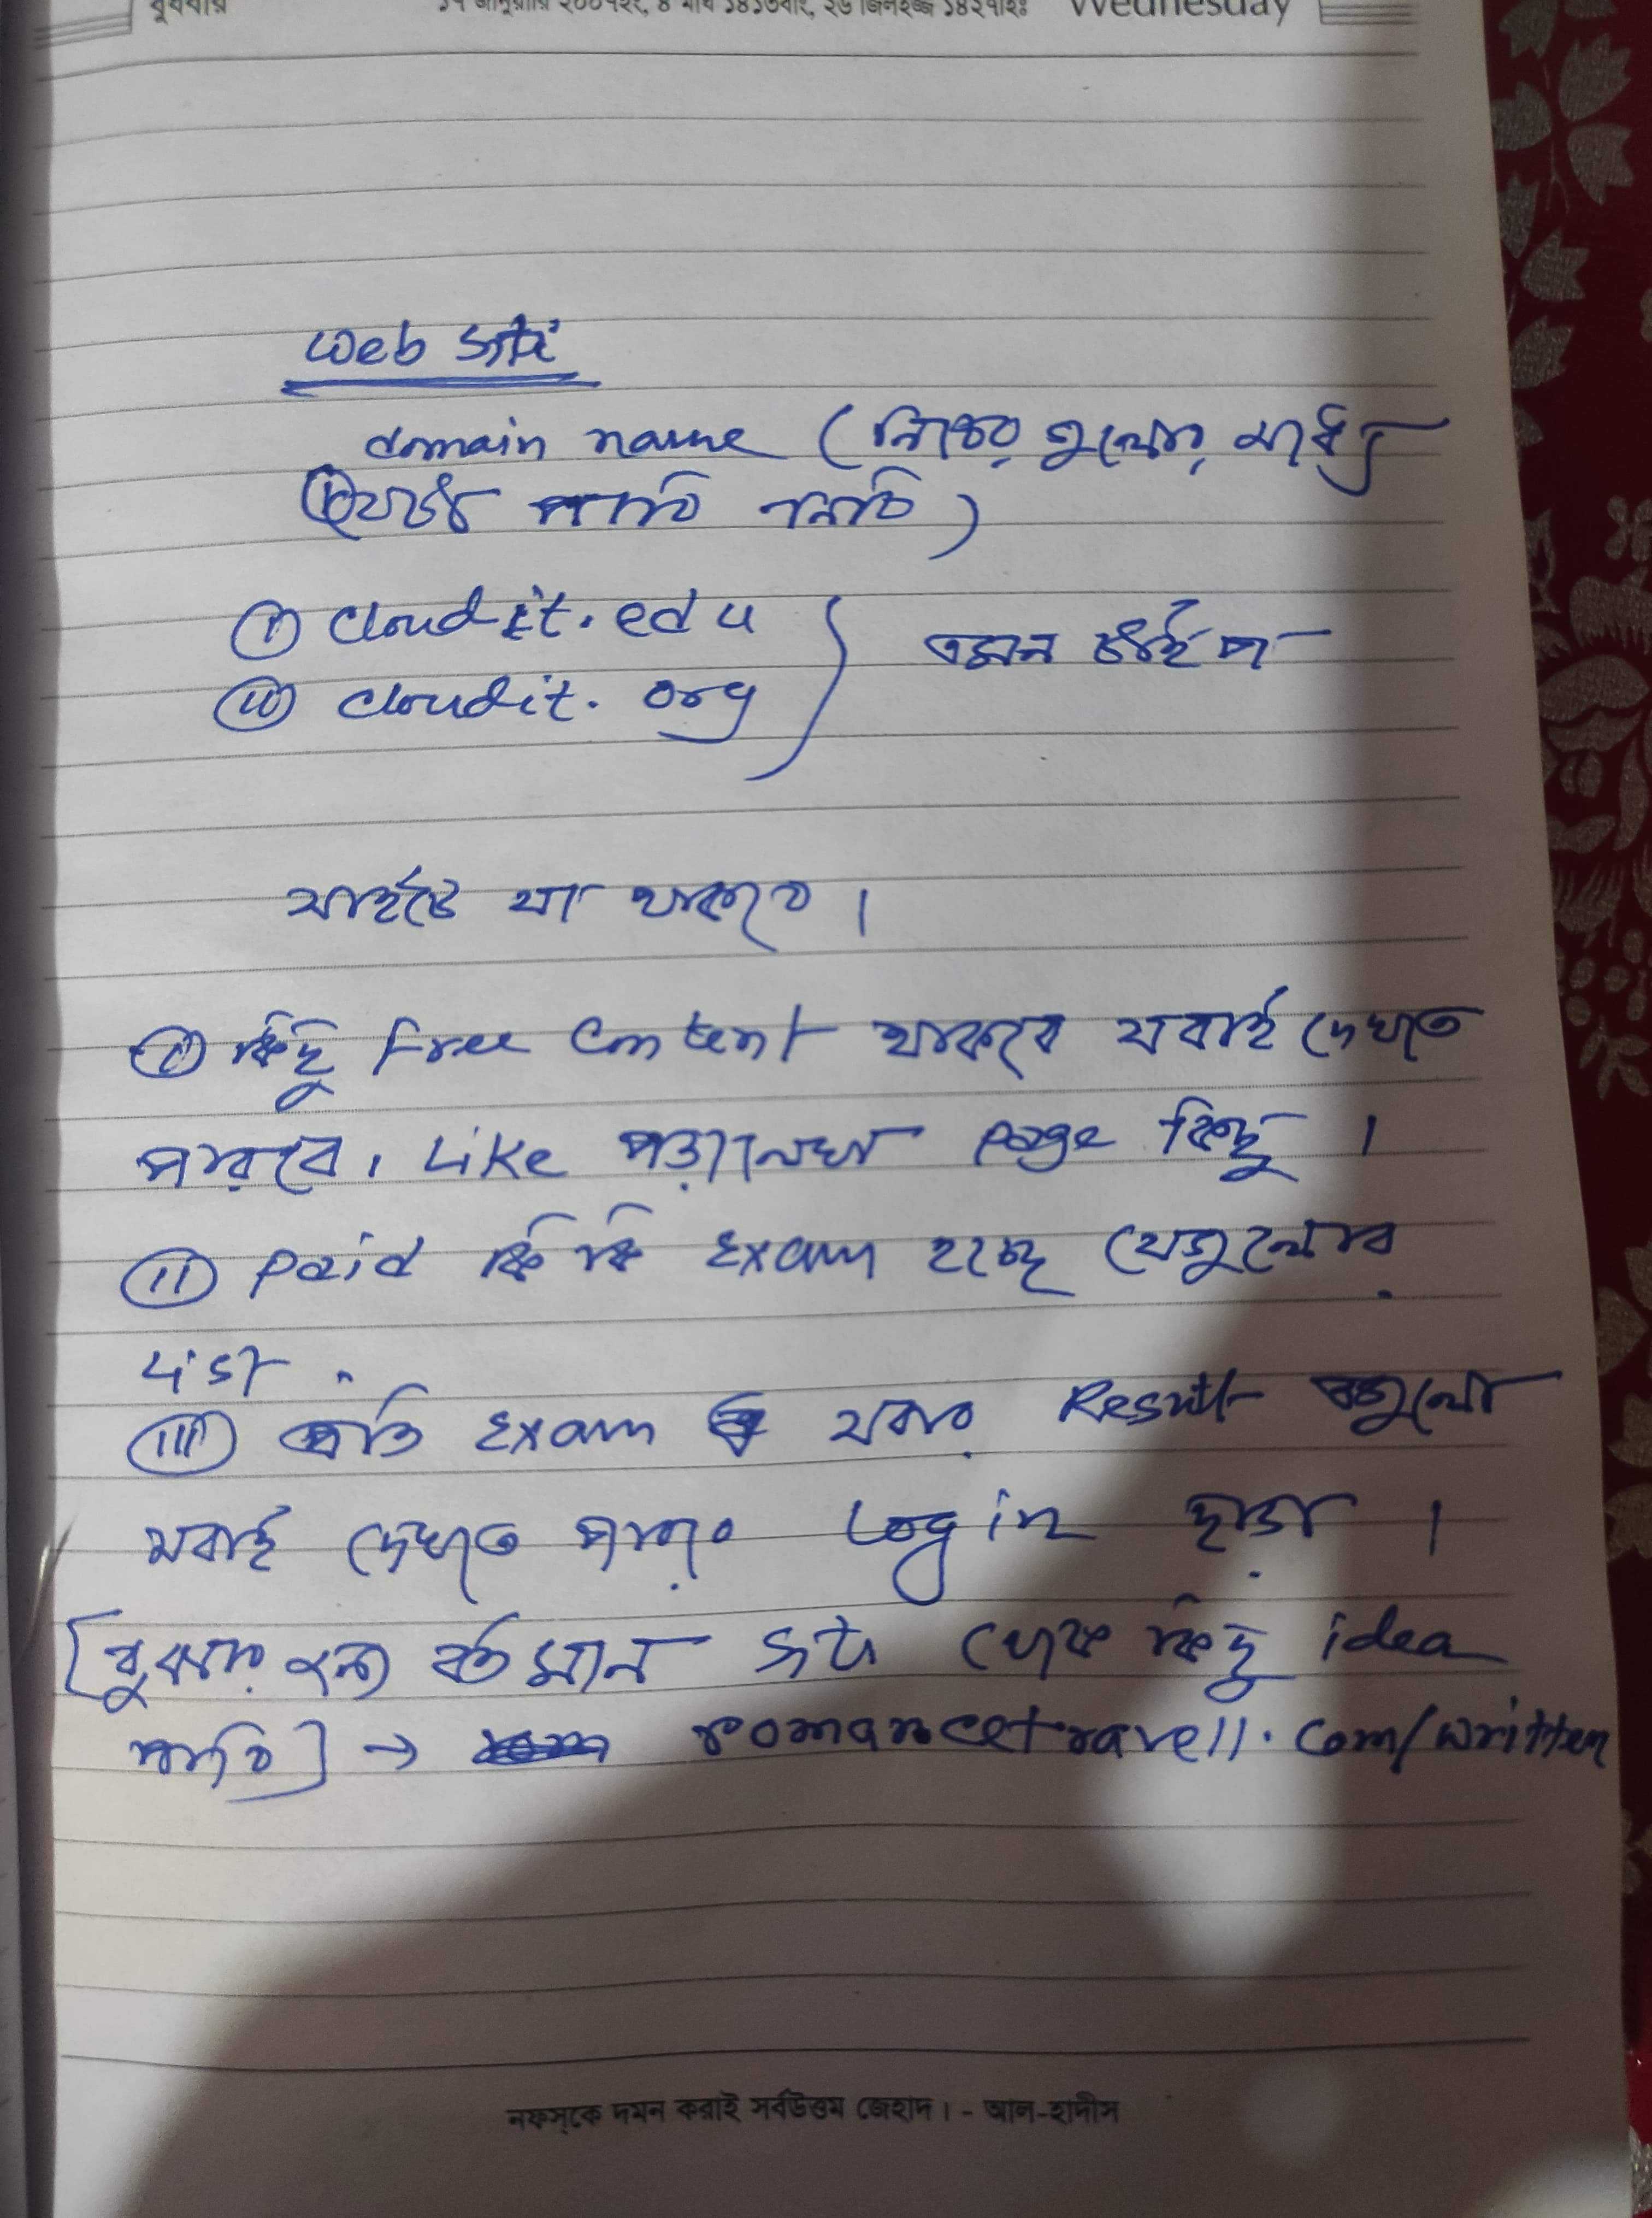 বুধবার ১৭ জানুয়ারি ২০০৭ইং, ৪ মাঘ ১৪১৩বাং, ২৬ জিলহজ্জ ১৪২৭হিঃ Wednesday
Web সাইট
domain name (নিচের গুলোর মধ্যে
যেটা পাবি নিবি)
(i) cloudit.edu
(ii) cloudit.org
এমন টাইপ
সাইটে যা থাকবে।
(i) কিছু free content থাকবে সবাই দেখতে
পারবে। Like পড়ালেখা page কিছু।
(ii) paid কি কি Exam হচ্ছে সেগুলোর
List.
(iii) প্রতি Exam সবার Result গুলো
সবাই দেখতে পারবে Log in ছাড়া।
[বুঝার জন্য বর্তমান সাইট থেকে কিছু idea
পাবি] → romancetravell.com/written
নফস্‌কে দমন করাই সর্বউত্তম জেহাদ। - আল-হাদীস